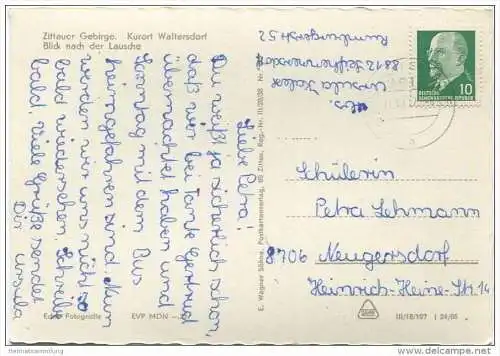 Zittauer Gebirge. Kurort Waltersdorf
Blick nach der Lausche
Liebe Petra!
Du weißt ja sicherlich schon,
daß wir bei Tante Gertrud
übernachtet haben und
Sonntag mit dem Bus
heimgefahren sind. Nun
werden wir uns nicht so
bald wiedersehen. Schreibe
bald. Viele Grüße sendet
Dir Ursula
Abs.
Ursula
8812 Seifhennersdorf
52
DEUTSCHE
DEMOKRATISCHE REPUBLIK
10
Schülerin
Petra Lehmann
8706 Neugersdorf
Heinrich-Heine-Str. 14
E. Wagner Söhne, Postkartenverlag, 88 Zittau, Reg.-Nr. III/28/08
Echte Fotografie
EVP MDN
III/18/197